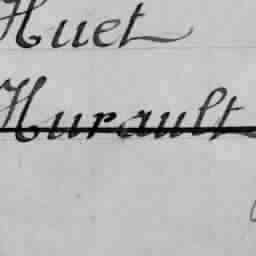 Huet
Hurault